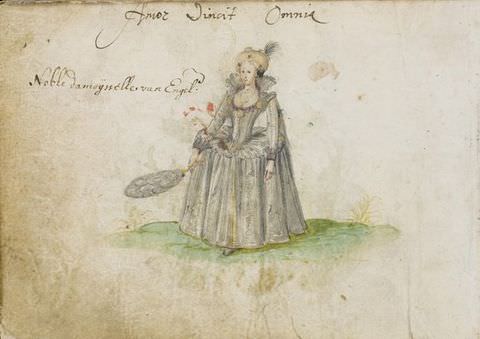 Amor Vincit Omnia
Noble damoysselle van Engel.d